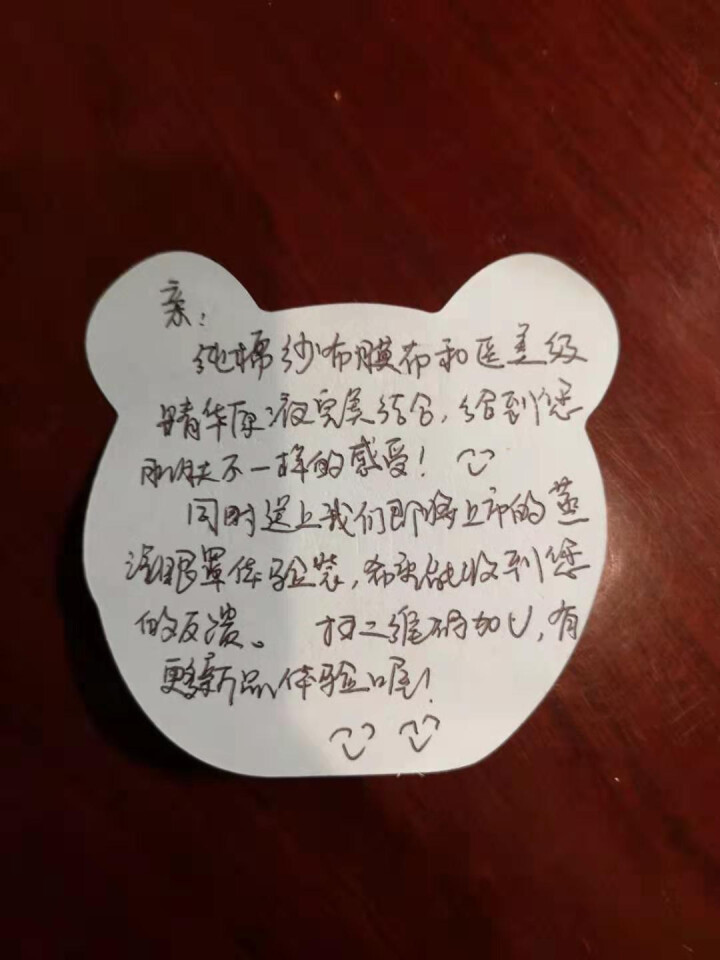 亲：
纯棉纱布膜布和医美级
精华原液完美结合，给到您
肌肤不一样的感受！
同时送上我们即将上市的蒸
汽眼罩体验装，希望能收到您
的反溃。 扫二维码加V，有
更多新品体验喔！